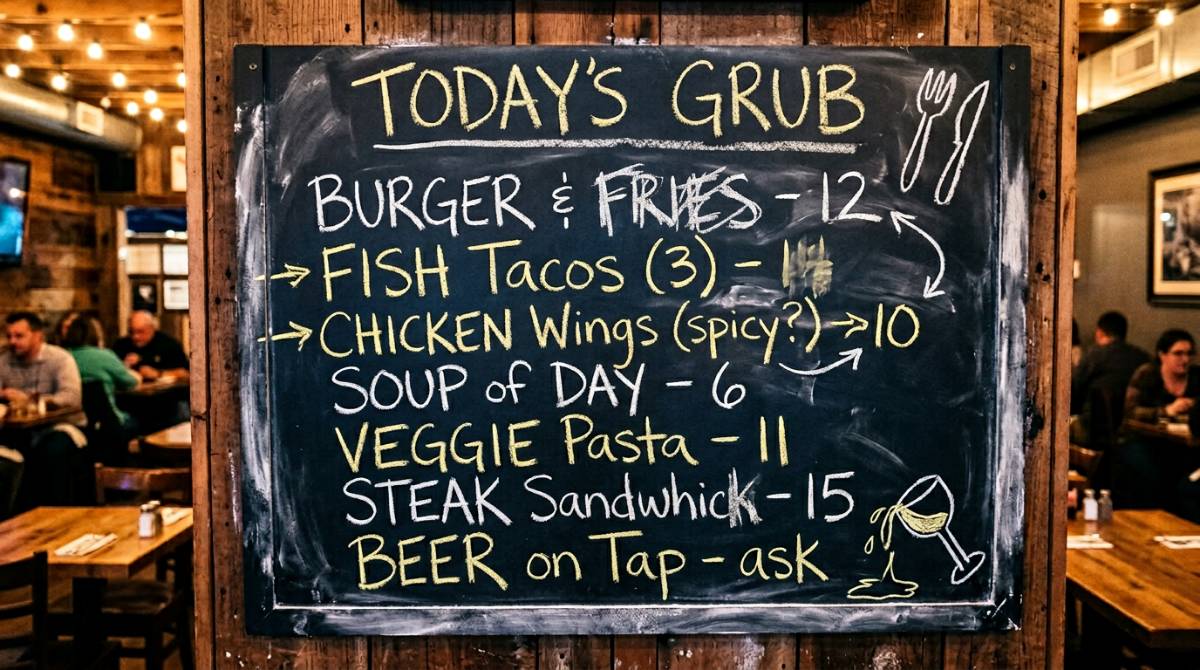 TODAY'S GRUB
BURGER & FRIES - 12
→ FISH Tacos (3) -
→ CHICKEN Wings (spicy?) → 10
SOUP of DAY - 6
VEGGIE Pasta - 11
STEAK Sandwhick - 15
BEER on Tap - ask